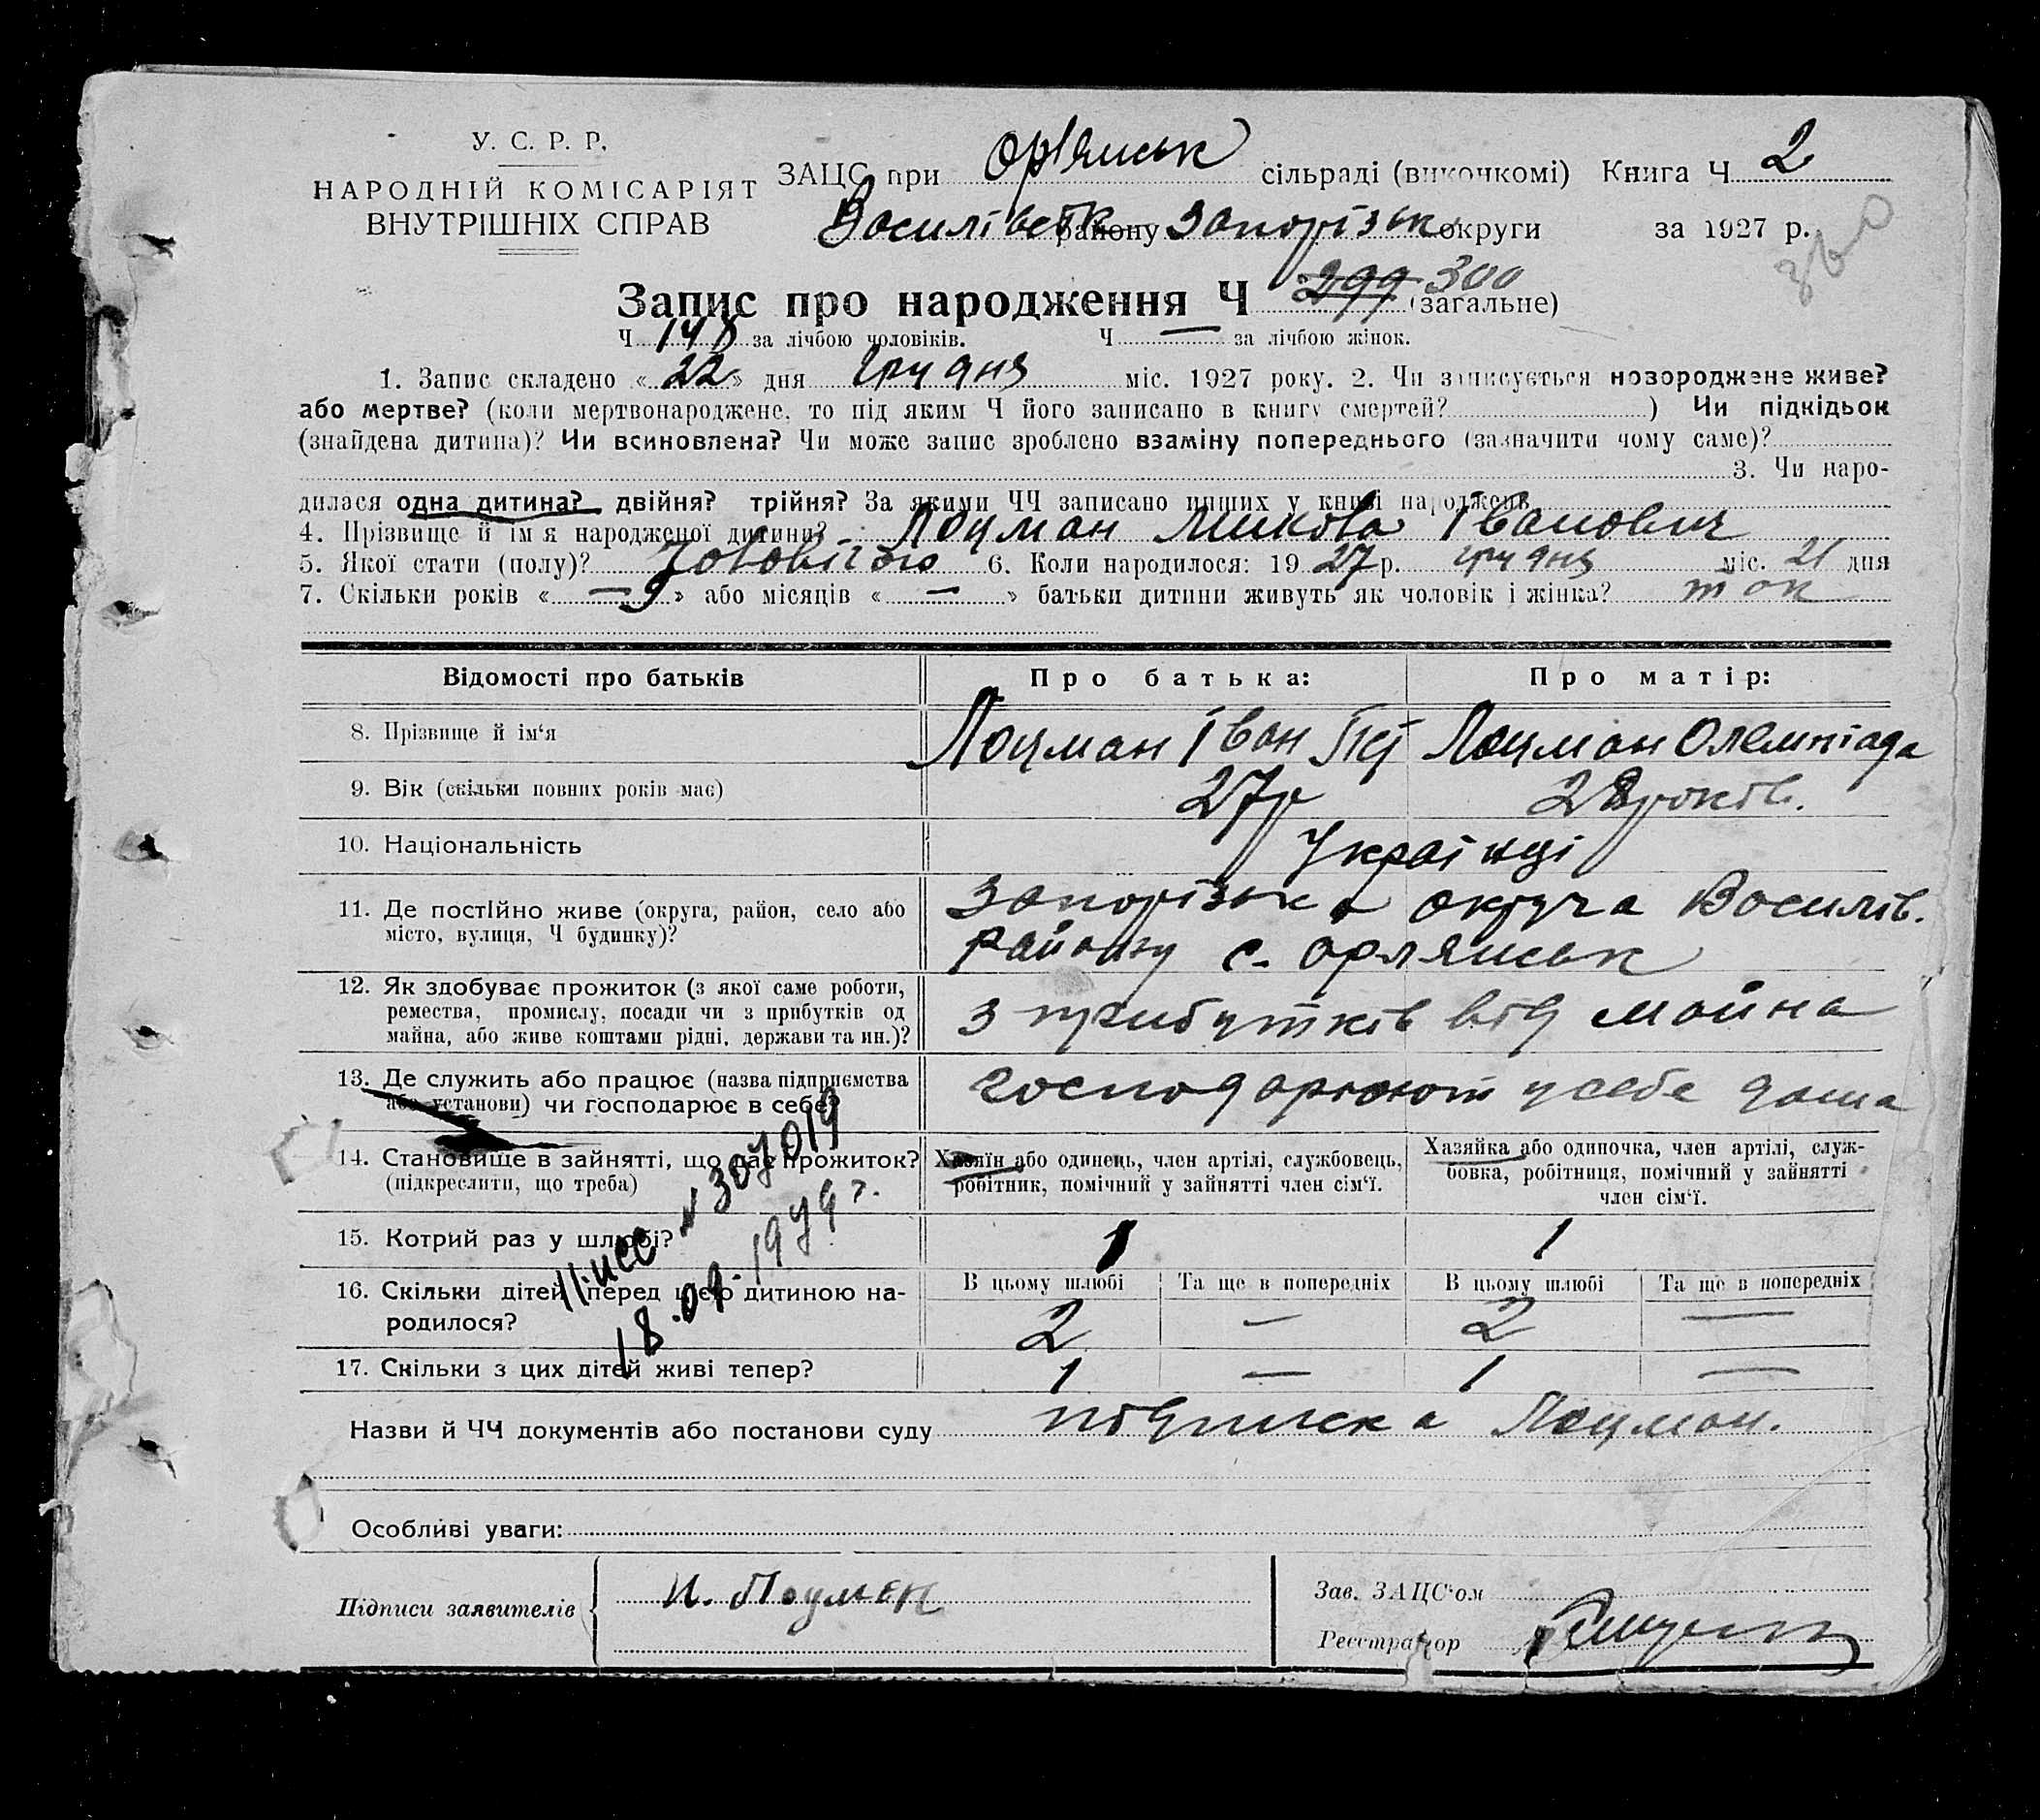 У. С. Р. Р.
НАРОДНІЙ КОМІСАРІЯТ
ВНУТРІШНІХ СПРАВ
ЗАЦС при Орлянськ сільраді (виконкомі) Книга Ч 2
Василівськ району Запорізьк округи за 1927 р.
360
Запис про народження Ч 299 300 (загальне)
Ч 148 за лічбою чоловіків. Ч — за лічбою жінок.
1. Запис складено «22» дня грудня міс. 1927 року. 2. Чи записується новороджене живе?
або мертве? (коли мертвонароджене, то під яким Ч його записано в книгу смертей? ) Чи підкідьок
(знайдена дитина)? Чи всиновлена? Чи може запис зроблено взаміну попереднього (зазначити чому саме)?
3. Чи наро-
дилася одна дитина? двійня? трійня? За якими ЧЧ записано инших у книзі народжень
4. Прізвище й ім'я народженої дитини? Лоцман Микола Іванович
5. Якої стати (полу)? 6. Коли народилося: 1927 р. грудня міс. 21 дня
7. Скільки років «— 9» або місяців «—» батьки дитини живуть як чоловік і жінка? так
Відомості про батьків Про батька: Про матір:
8. Прізвище й ім'я Лоцман Іван Лоцман Олемпіада
9. Вік (скільки повних років має) 27р 28 років.
10. Національність Українці
11. Де постійно живе (округа, район, село або Запорізька округа Василів.
місто, вулиця, Ч будинку)? району с. Орлянськ
12. Як здобуває прожиток (з якої саме роботи,
ремества, промислу, посади чи з прибутків од з прибутків від майна
майна, або живе коштами рідні, держави та ин.)?
13. Де служить або працює (назва підприємства господарюют у себе дома
або установи) чи господарює в себе?
14. Становище в зайнятті, що дає прожиток? Хазяїн або одинець, член артілі, службовець, Хазяйка або одиночка, член артілі, служ-
(підкреслити, що треба) робітник, помічний у зайнятті член сім'ї. бовка, робітниця, помічний у зайнятті
член сім'ї.
15. Котрий раз у шлюбі? 1 1
16. Скільки дітей перед цією дитиною на- В цьому шлюбі Та ще в попередніх В цьому шлюбі Та ще в попередніх
родилося? 2 — 2 —
17. Скільки з цих дітей живі тепер? 1 — 1 —
18.09.1979 г.
Назви й ЧЧ документів або постанови суду підписка Лоцман.
Особливі уваги:
Підписи заявителів И. Лоцман
Зав. ЗАЦС'ом
Реєстратор